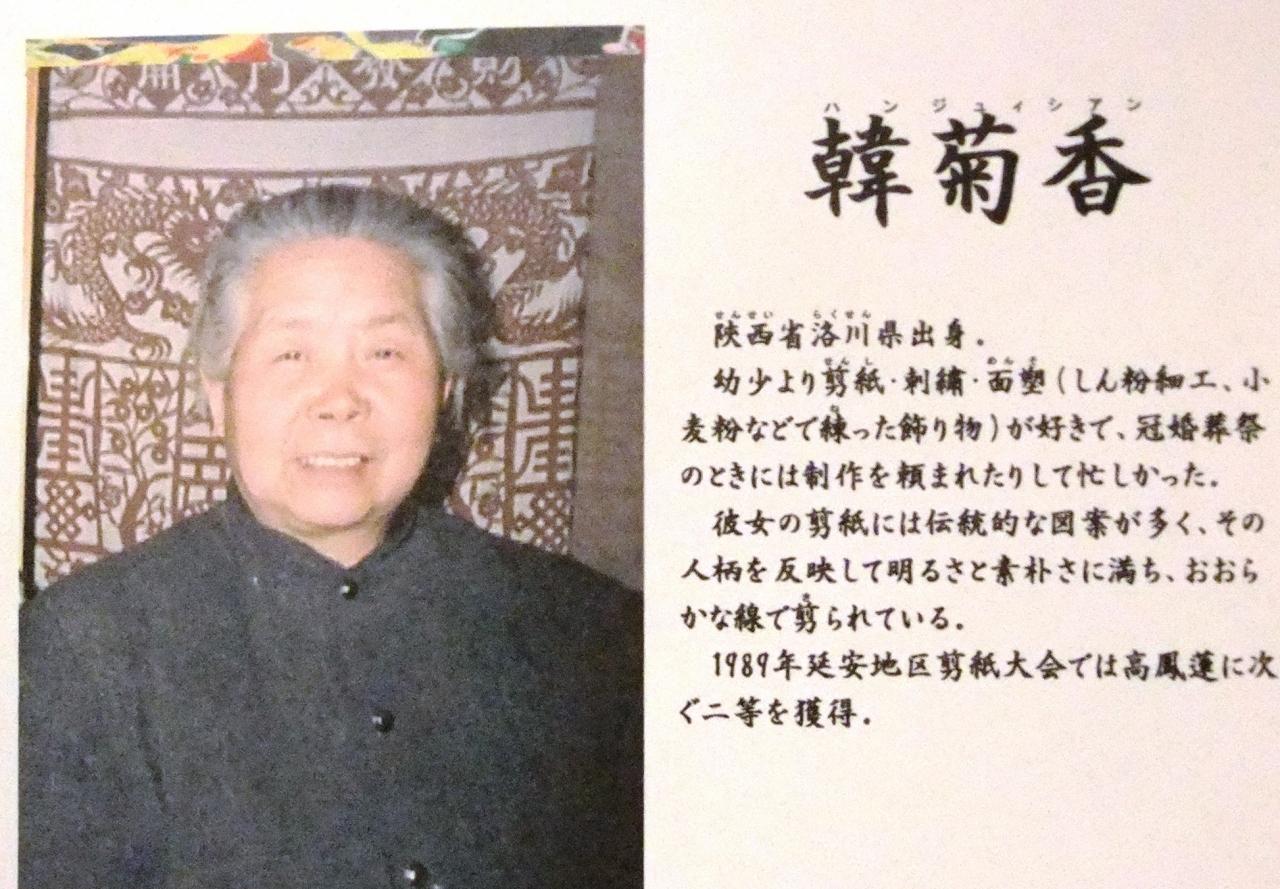 ハンジュィシアン
韓菊香
せんせい らくせん
陜西省洛川県出身。
せんし めんそ
幼少より剪紙·刺繡·面塑(しん粉細工、小
ね
麦粉などで練った飾り物)が好きで、冠婚葬祭
のときには制作を頼まれたりして忙しかった。
彼女の剪紙には伝統的な図案が多く、その
人柄を反映して明るさと素朴さに満ち、おおら
き
かな線で剪られている。
1989年延安地区剪紙大会では高鳳蓮に次
ぐ二等を獲得。